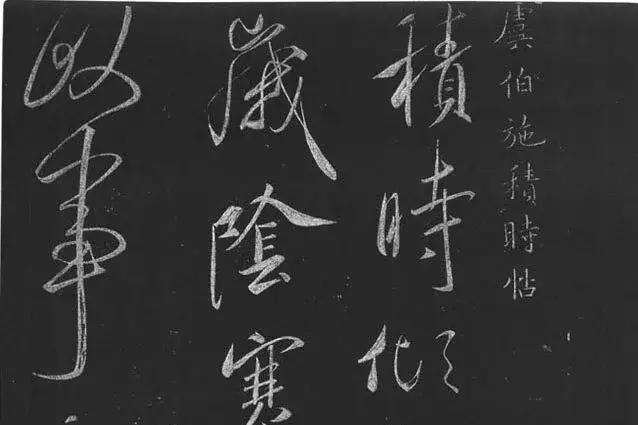 虞伯施積時帖
積時傾
歲陰寒
故事